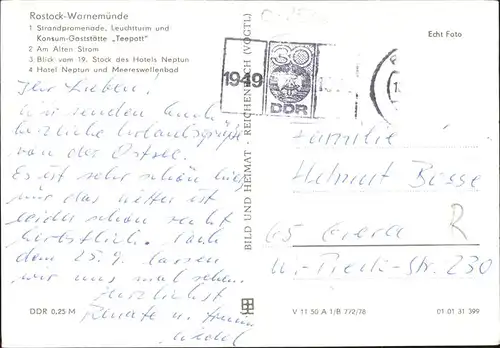 Rostock-Warnemünde
1 Strandpromenade, Leuchtturm und
Konsum-Gaststätte „Teepott"
2 Am Alten Strom
3 Blick vom 19. Stock des Hotels Neptun
4 Hotel Neptun und Meereswellenbad
Ihr Lieben!
Wir senden Euch
herzliche Urlaubsgrüße
von der Ostsee.
Es ist sehr schön hier,
nur das Wetter ist
leider schon recht
herbstlich. Nach
dem 25.9. lassen
wir uns mal sehen.
Herzlichst
Renate u.
DDR 0,25 M
BILD UND HEIMAT · REICHENBACH (VOGTL)
Echt Foto
1949
30
DDR
Familie
Helmut Bosse
65 Gera
W.-Pieck-Str. 230
R
V 11 50 A 1/B 772/78
01 01 31 399